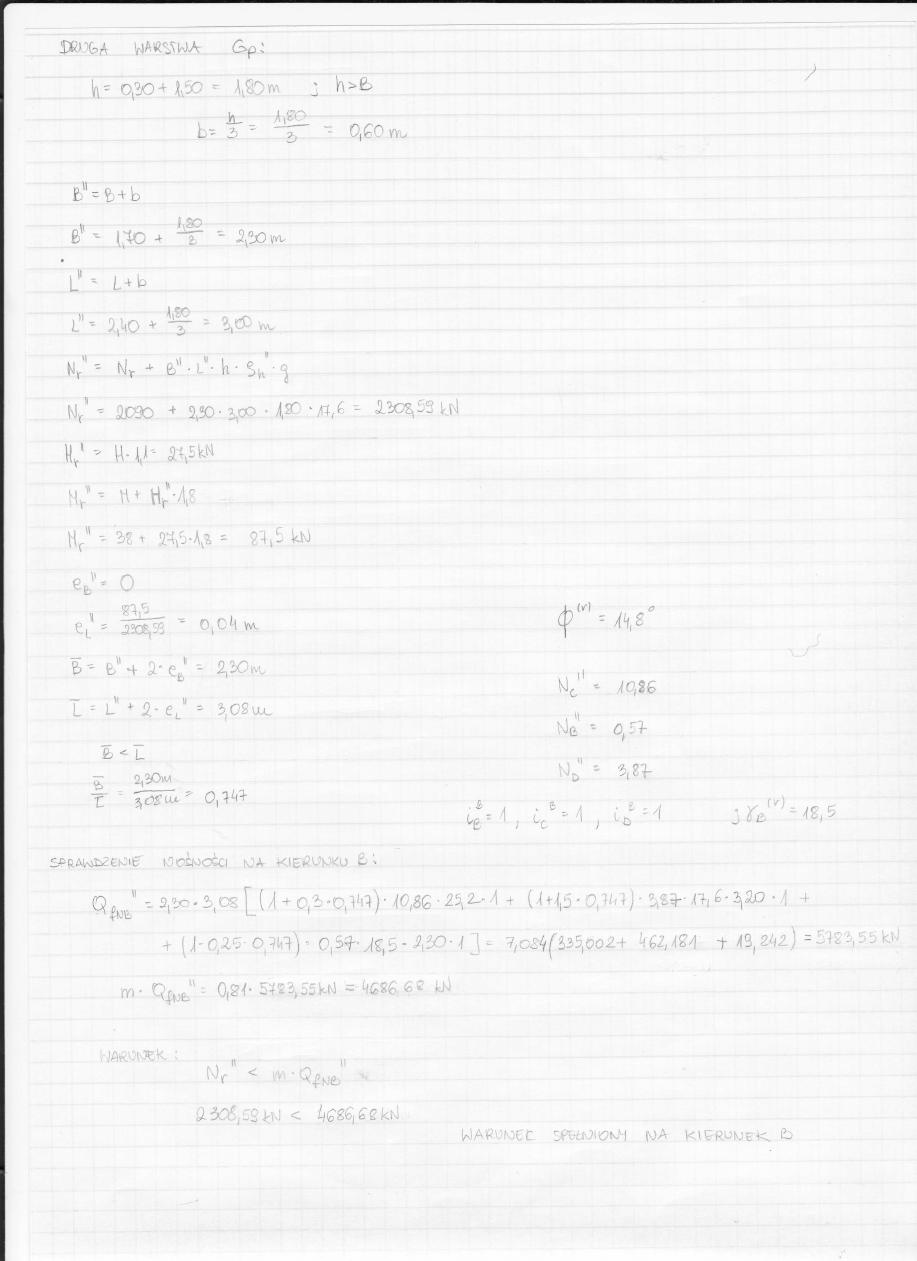 DRUGA WARSTWA Gp:
h = 0,30 + 1,50 = 1,80 m ; h > B
b = h/3 = 1,80/3 = 0,60 m
B'' = B + b
B'' = 1,70 + 1,80/3 = 2,30 m
L'' = L + b
L'' = 2,40 + 1,80/3 = 3,00 m
Nr'' = Nr + B'' · L'' · h · ρh'' · g
Nr'' = 2090 + 2,30 · 3,00 · 1,80 · 17,6 = 2308,59 kN
Hr' = H · 1,1 = 27,5 kN
Mr'' = M + Hr'' · 1,8
Mr'' = 38 + 27,5 · 1,8 = 87,5 kN
eB'' = 0
eL'' = 87,5/2308,59 = 0,04 m
ϕ(r) = 14,8°
B̅ = B'' + 2 · eB'' = 2,30 m
Nc'' = 10,86
L̅ = L'' + 2 · eL'' = 3,08 m
NB'' = 0,57
B̅ < L̅
ND'' = 3,87
B̅/L̅ = 2,30 m/3,08 m = 0,747
iB^B = 1 , iC^B = 1 , iD^B = 1 ; γB(r) = 18,5
SPRAWDZENIE NOŚNOŚCI NA KIERUNKU B:
QfNB'' = 2,30 · 3,08 [(1 + 0,3 · 0,747) · 10,86 · 25,2 · 1 + (1 + 1,5 · 0,747) · 3,87 · 17,6 · 3,20 · 1 +
+ (1 - 0,25 · 0,747) · 0,57 · 18,5 · 2,30 · 1] = 7,084 (335,002 + 462,181 + 19,242) = 5783,55 kN
m · QfNB'' = 0,81 · 5783,55 kN = 4686,68 kN
WARUNEK:
Nr'' < m · QfNB''
2308,59 kN < 4686,68 kN
WARUNEK SPEŁNIONY NA KIERUNEK B